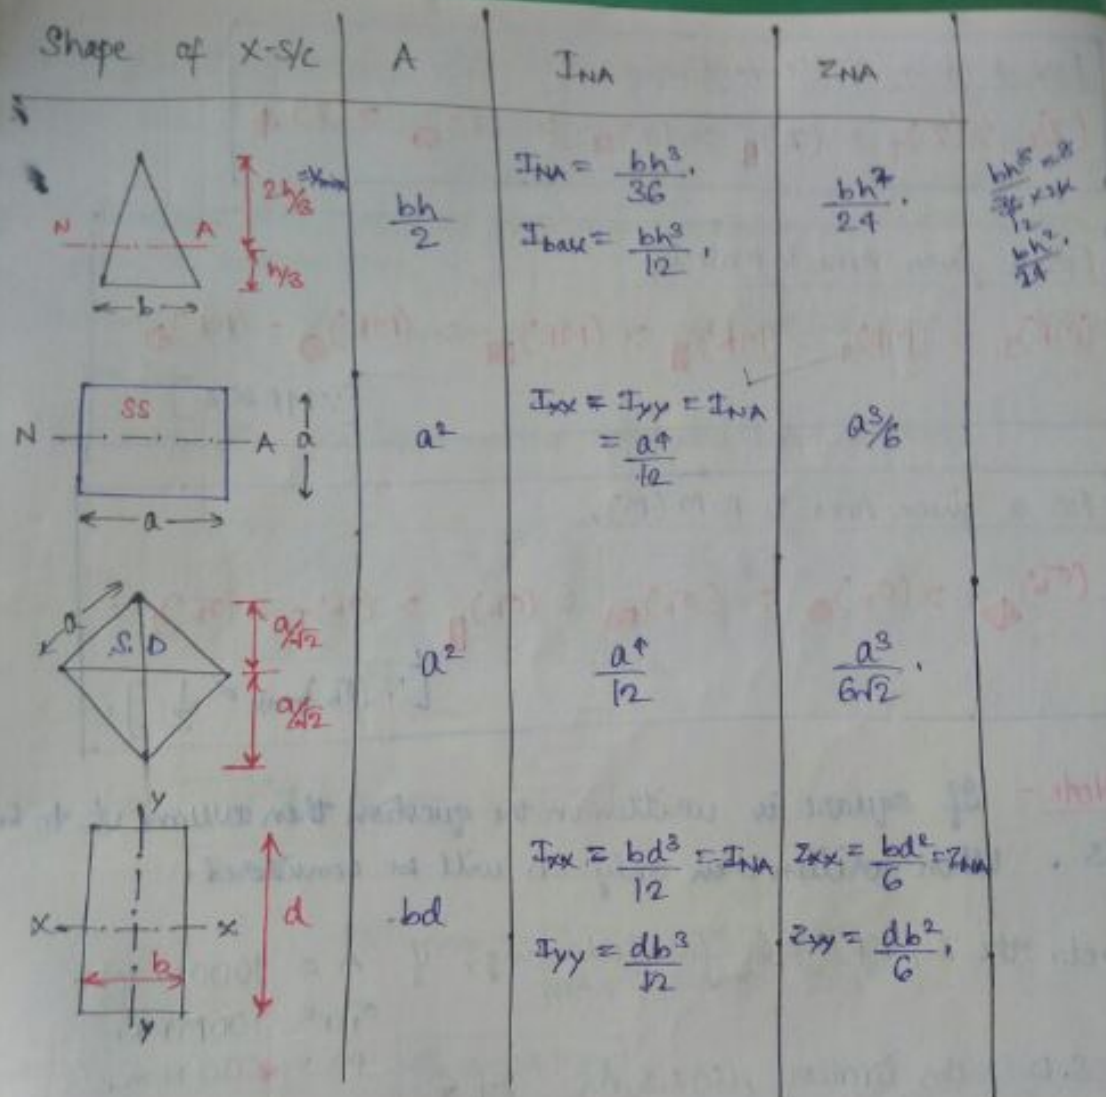 Shape of X-S/C A I_NA Z_NA
2h/3 = y_max
N A
h/3
b
bh/2
I_NA = bh³/36.
I_base = bh³/12.
bh²/24.
bh³
12
bh²/24.
SS
N A a
a
a²
I_xx = I_yy = I_NA
= a⁴/12
a³/6
a
S. D
a/√2
a/√2
a²
a⁴/12
a³/6√2.
y
x x
d
b
y
bd
I_xx = bd³/12 = I_NA
Z_xx = bd²/6 = Z_NA
I_yy = db³/12
Z_yy = db²/6.